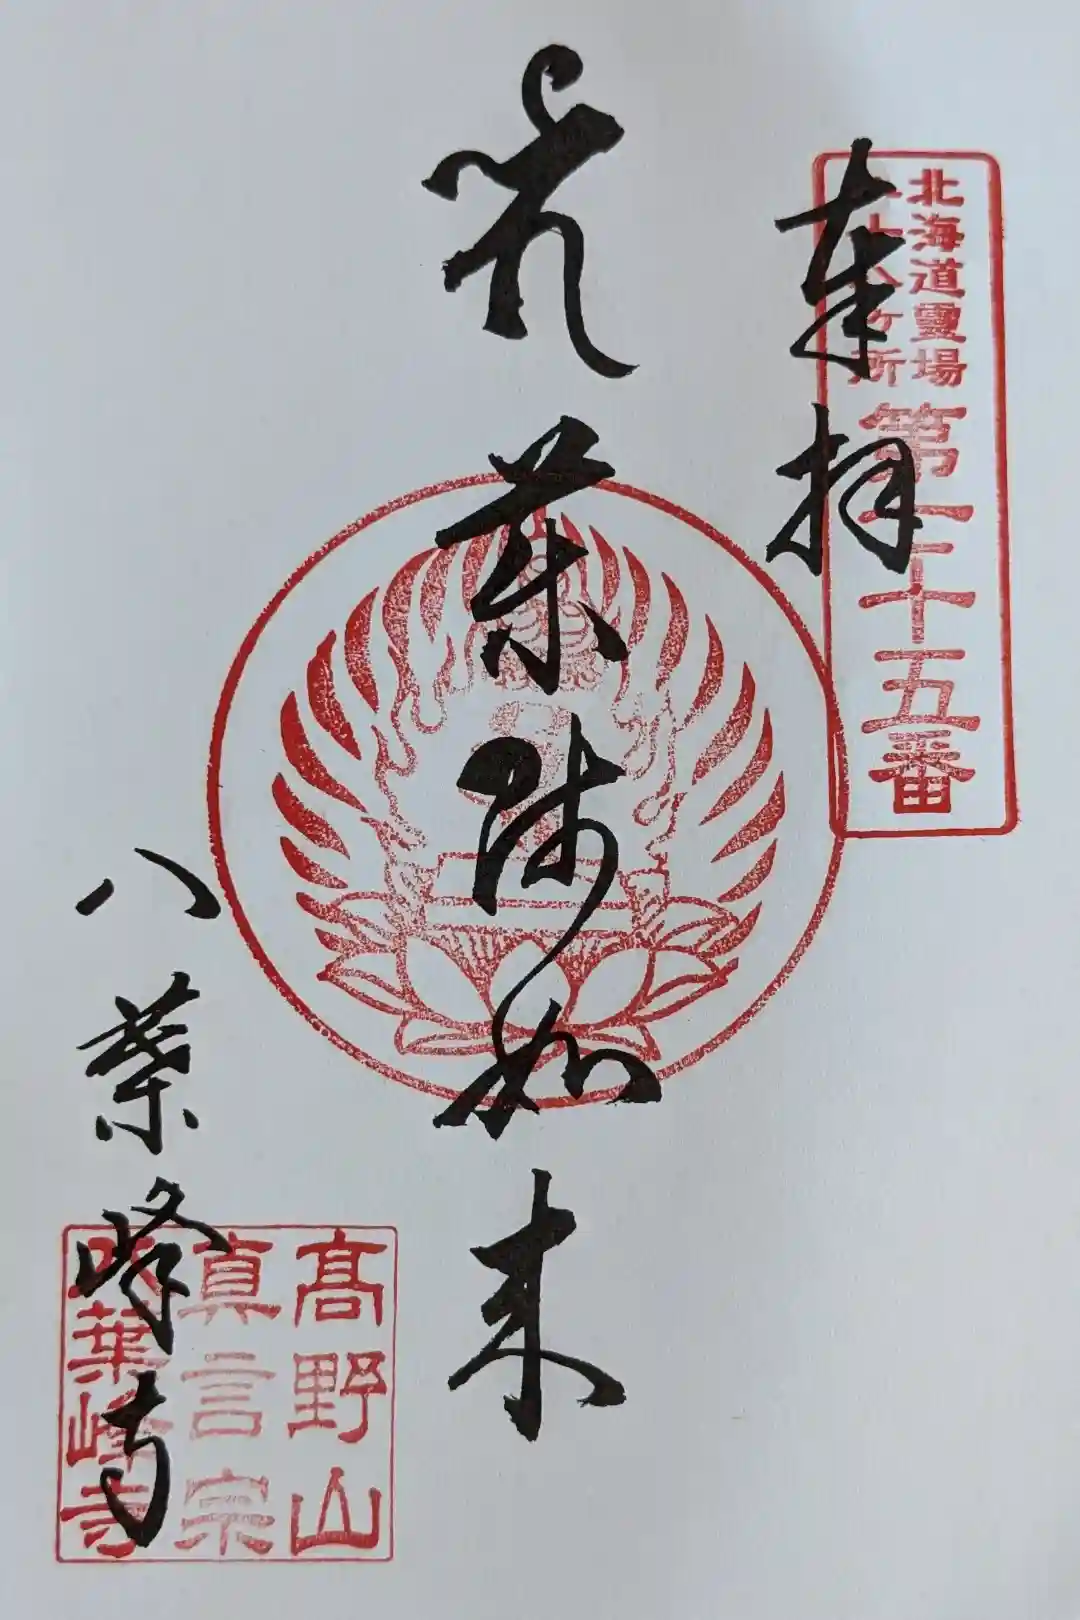 北海道靈場
八十八ヶ所
第二十五番
奉拝
薬師如来
八葉峰寺
高野山
真言宗
八葉峰寺